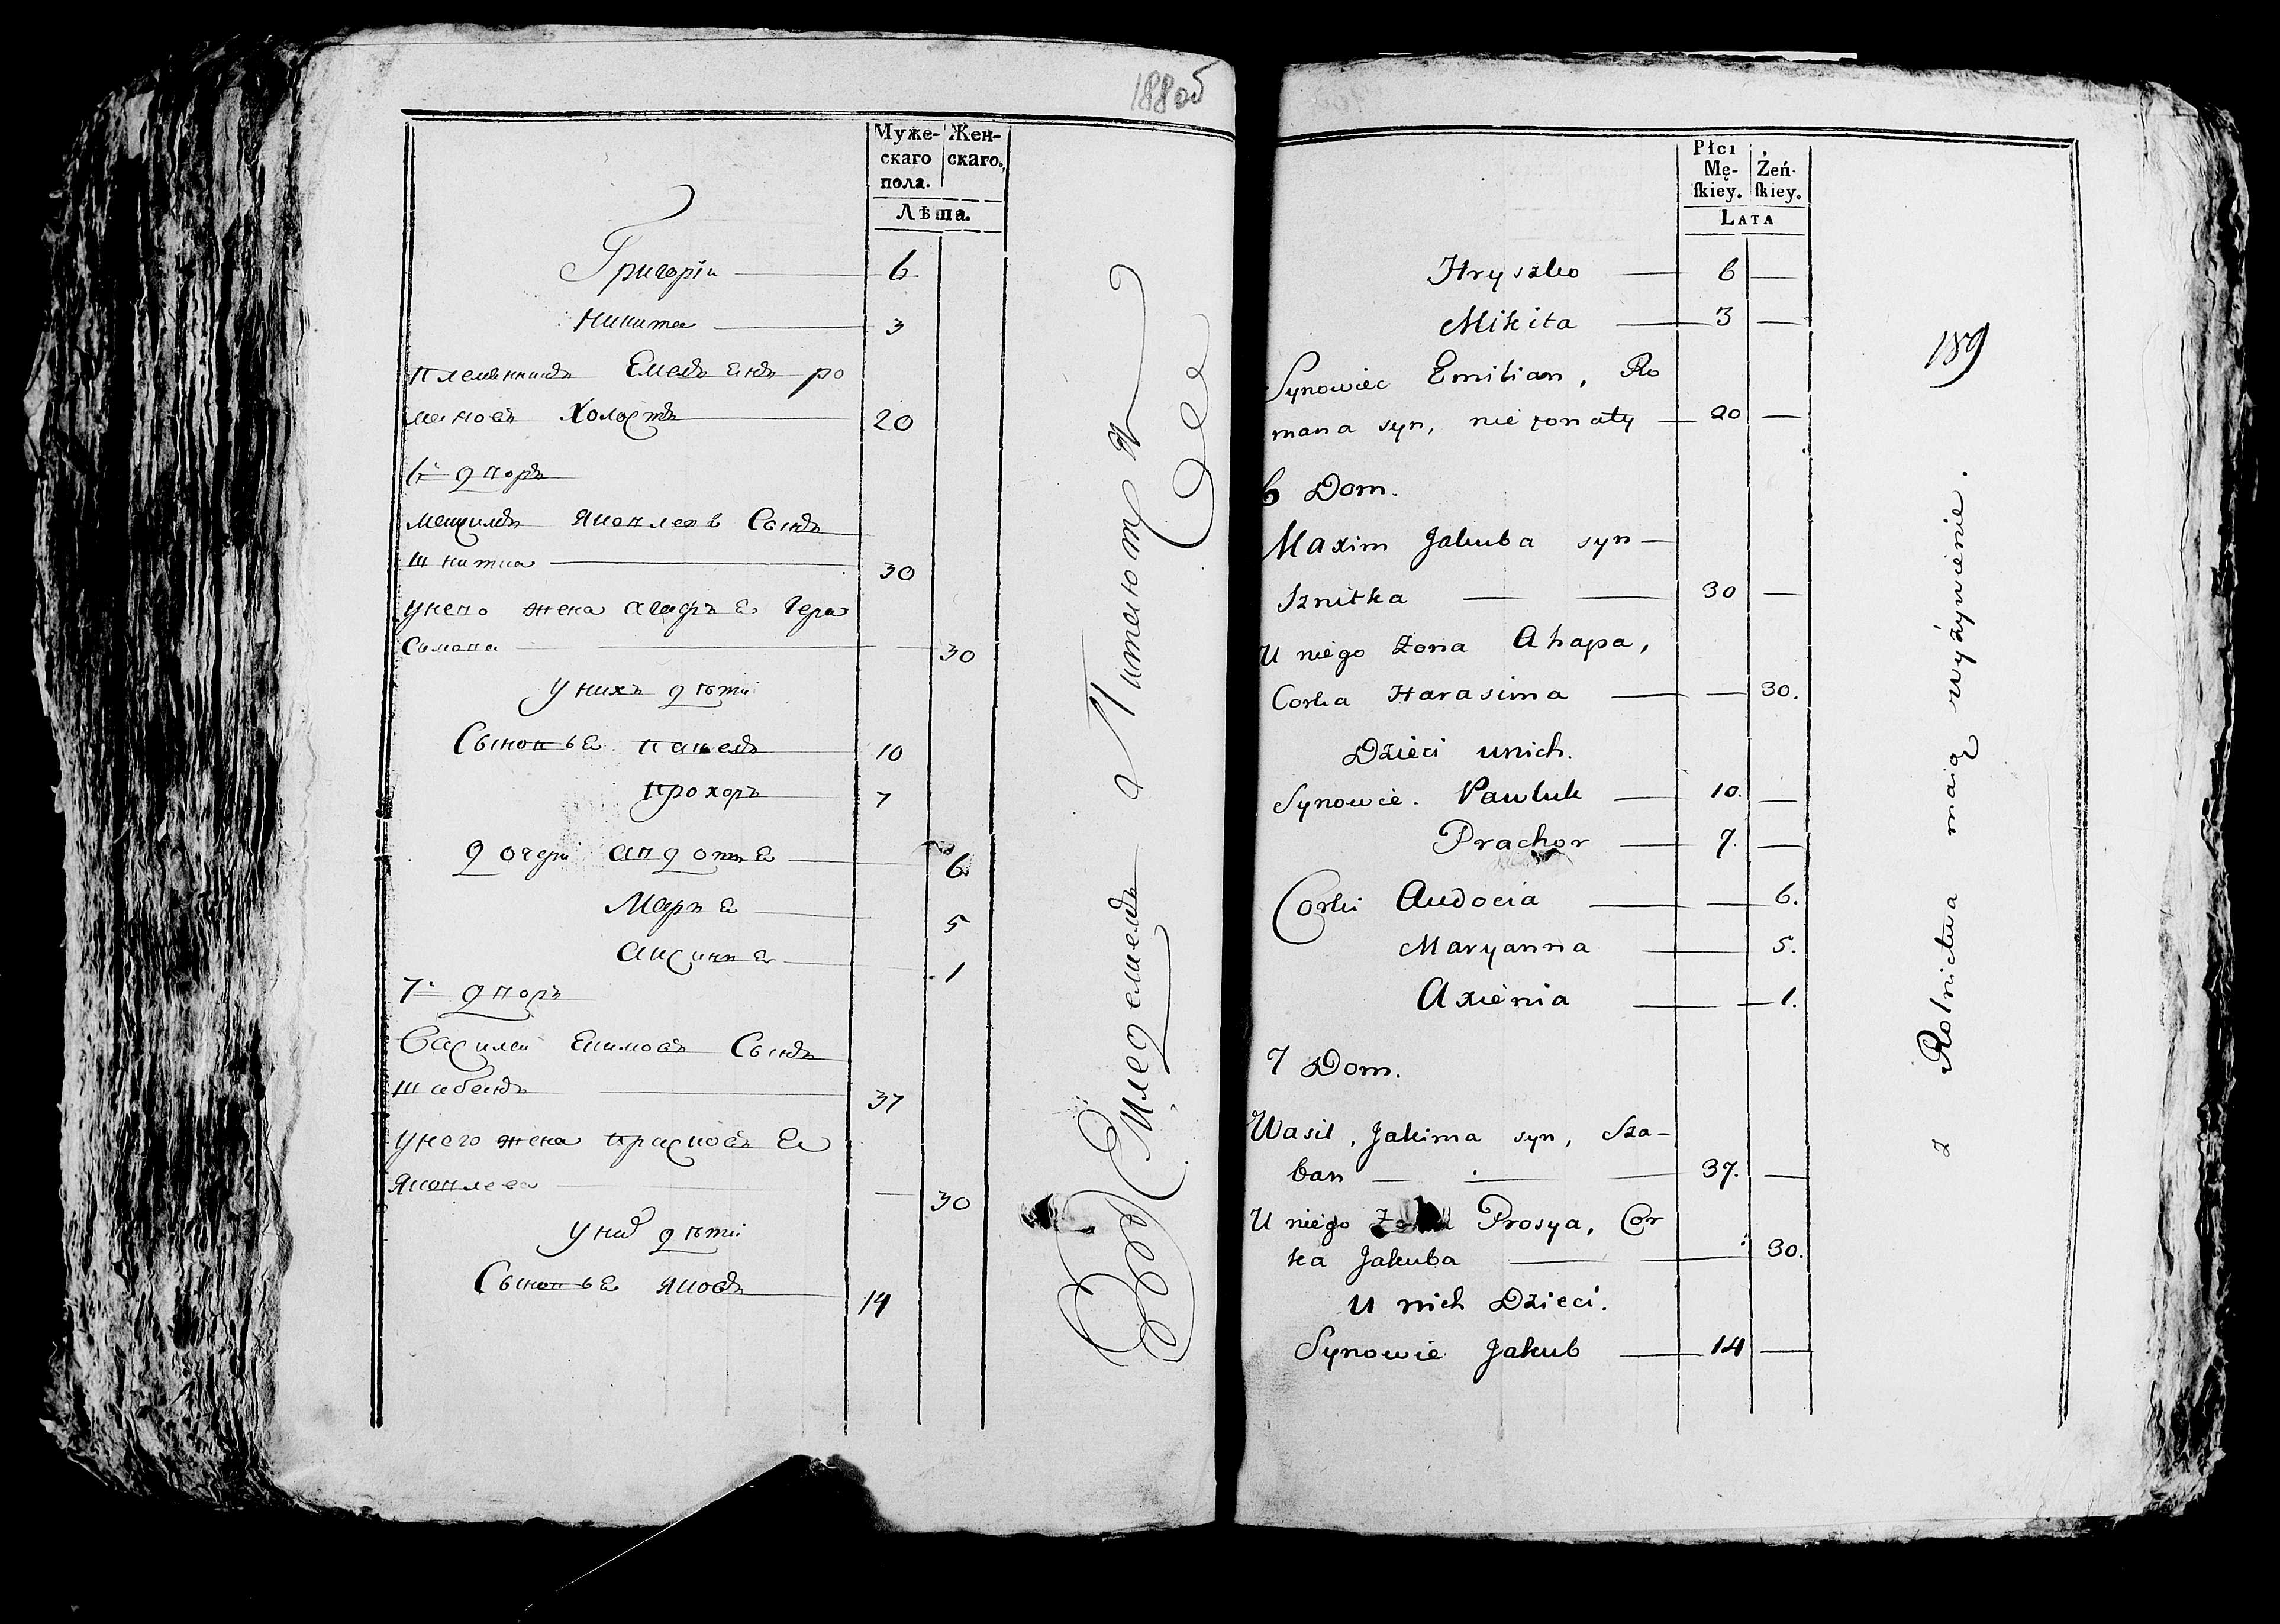 188об
Муже- Жен-
скаго скаго.
пола.
Лѣта.
Григорiи 6
Никита 3
племянникъ Емельянъ ро
мановъ холостъ 20
6й дворъ
Максимъ Яковлевъ Сынъ
Шнитка 30
унево жена агафья Гера
симова 30
у нихъ дѣти
Сыновья павелъ 10
прохоръ 7
дочери авдотья 6
Марья 5
аксинья 1
7й дворъ
Василей Якимовъ Сынъ
шабанъ 37
унего жена прасковья
Яковлева 30
у них дѣти
Сыновья яковъ 14
питаютца
Płci
Mę- Żeń-
ſkiey. ſkiey.
Lata
Hryszko 6
Mikita 3
Synowiec Emilian, Ro
mana syn, nie żonaty 20
6 Dom.
Maxim Jakuba syn
Sznitka 30
U niego żona Ahapa,
Corka Harasima 30.
Dzieci unich.
Synowie. Pawluk 10.
Prachor 7.
Corki Audocia 6.
Maryanna 5.
Axienia 1.
7 Dom.
Wasil, Jakima syn, Sza-
ban 37.
U niego Prosya, Cor
ka Jakuba 30.
U nich Dzieci.
Synowie Jakub 14
189
z Rolnictwa maią wyżywienie.